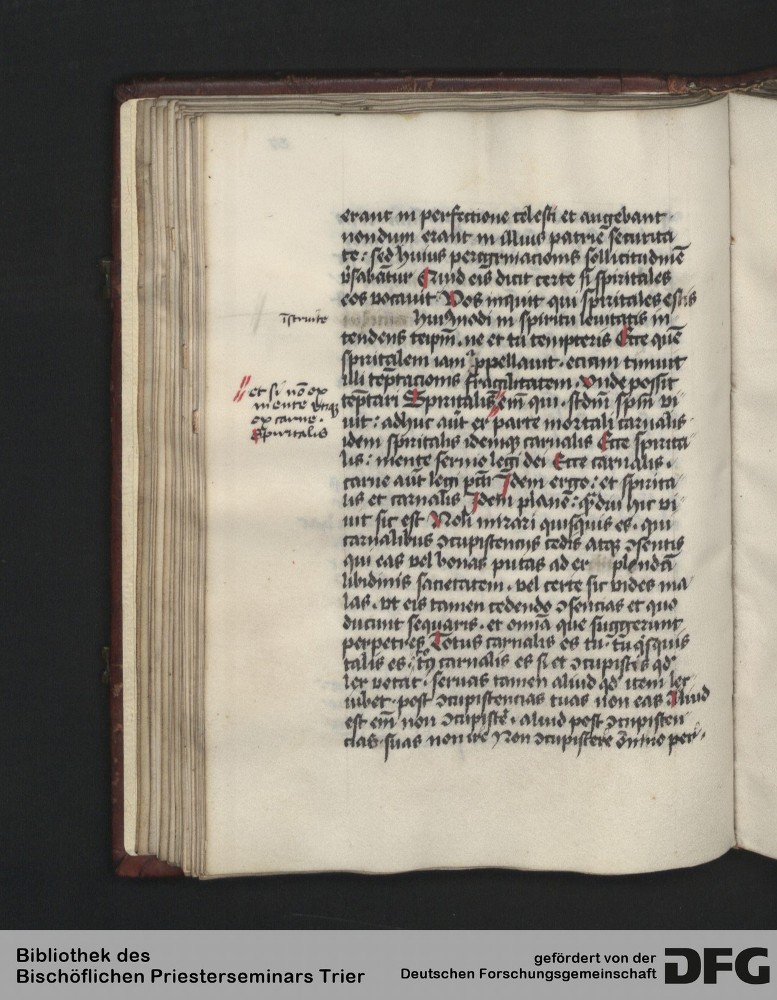 erant in perfectione celesti et augebant
nondum erant in illius patrie securita
te : sed huius peregrinacionis sollicitudine
v̄sabātur Quid eis dicit certe si spiritales
eos vocauit Vos inquit qui spiritales estis
īstruite
huiꝰmodi in spiritu lenitatis in
tendens teipm̄ . ne et tu tempteris Ecce quē
spiritalem iam appellauit . eciam timuit
illi tēptacionis fragilitatem . Vnde possit
et si nō ex
mente vtiqꝫ
ex carne .
Spiritalis
tēptari Spiritalis em̄ qui . scd̄m sp̄m vi
uit : adhuc aūt ex parte mortali carnalis
idem spiritalis idemqꝫ carnalis Ecce spirita
lis : mente seruio legi dei Ecce carnalis .
carne aūt legi pcti Idem ergo : et spirita
lis et carnalis Idem plane : qᵃdiu hic vi
uit sic est Noli mirari quisquis es . qui
carnalibus ↄcupiscencijs cedis atqꝫ ↄsentis
qui eas vel bonas putas ad ex plendā
libidinis sacietatem . vel certe sic vides ma
las . vt eis tamen cedendo ↄsencias et quo
ducunt sequaris . et omīa que suggerunt
perpetres Totus carnalis es tu : tu qͥsquis
talis es . totꝰ carnalis es si et ↄcupiscis qd̓
lex vetat . seruas tamen aliud qd̓ item lex
iubet . post ↄcupiscencias tuas non eas Aliud
est em̄ non ↄcupiscē . aliud post ↄcupiscen
cias suas non ire Non ↄcupiscere om̄nino per
Bibliothek des
Bischöflichen Priesterseminars Trier
gefördert von der
Deutschen Forschungsgemeinschaft
DFG